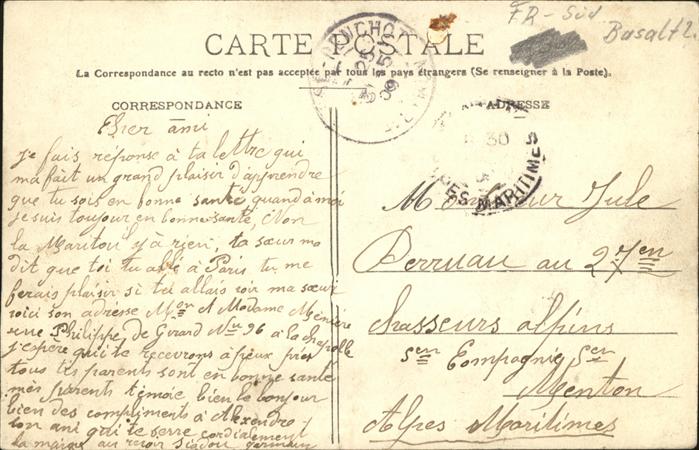 FR - Süd
Basalt
CARTE POSTALE
La Correspondance au recto n'est pas acceptée par tous les pays étrangers (Se renseigner à la Poste).
CORRESPONDANCE
ADRESSE
30
MARITIMES
Cher ami
je fais réponse à ta lettre qui
ma fait un grand plaisir d'apprendre
que tu sois en bonne santé, quand à moi
je suis toujour en bonne santé, Non
la y à rien, ta sœur ma
dit que toi tu allé à Paris tu me
ferais plaisir si tu allais voir ma sœur
voici son adresse Mor et Madame
rue Philippe de Girard No 96 à la chapelle
j'espère qu'i te recevrons à peux près
tous tes parents sont en bonne santé
mes parents bien le bonjour
bien des compliments à
ton ami qui te serre cordialement
la main au revoir germain
Monsieur Jule
Perruau au 27en
chasseurs alpins
5en Compagnie
Menton
Alpes Maritimes